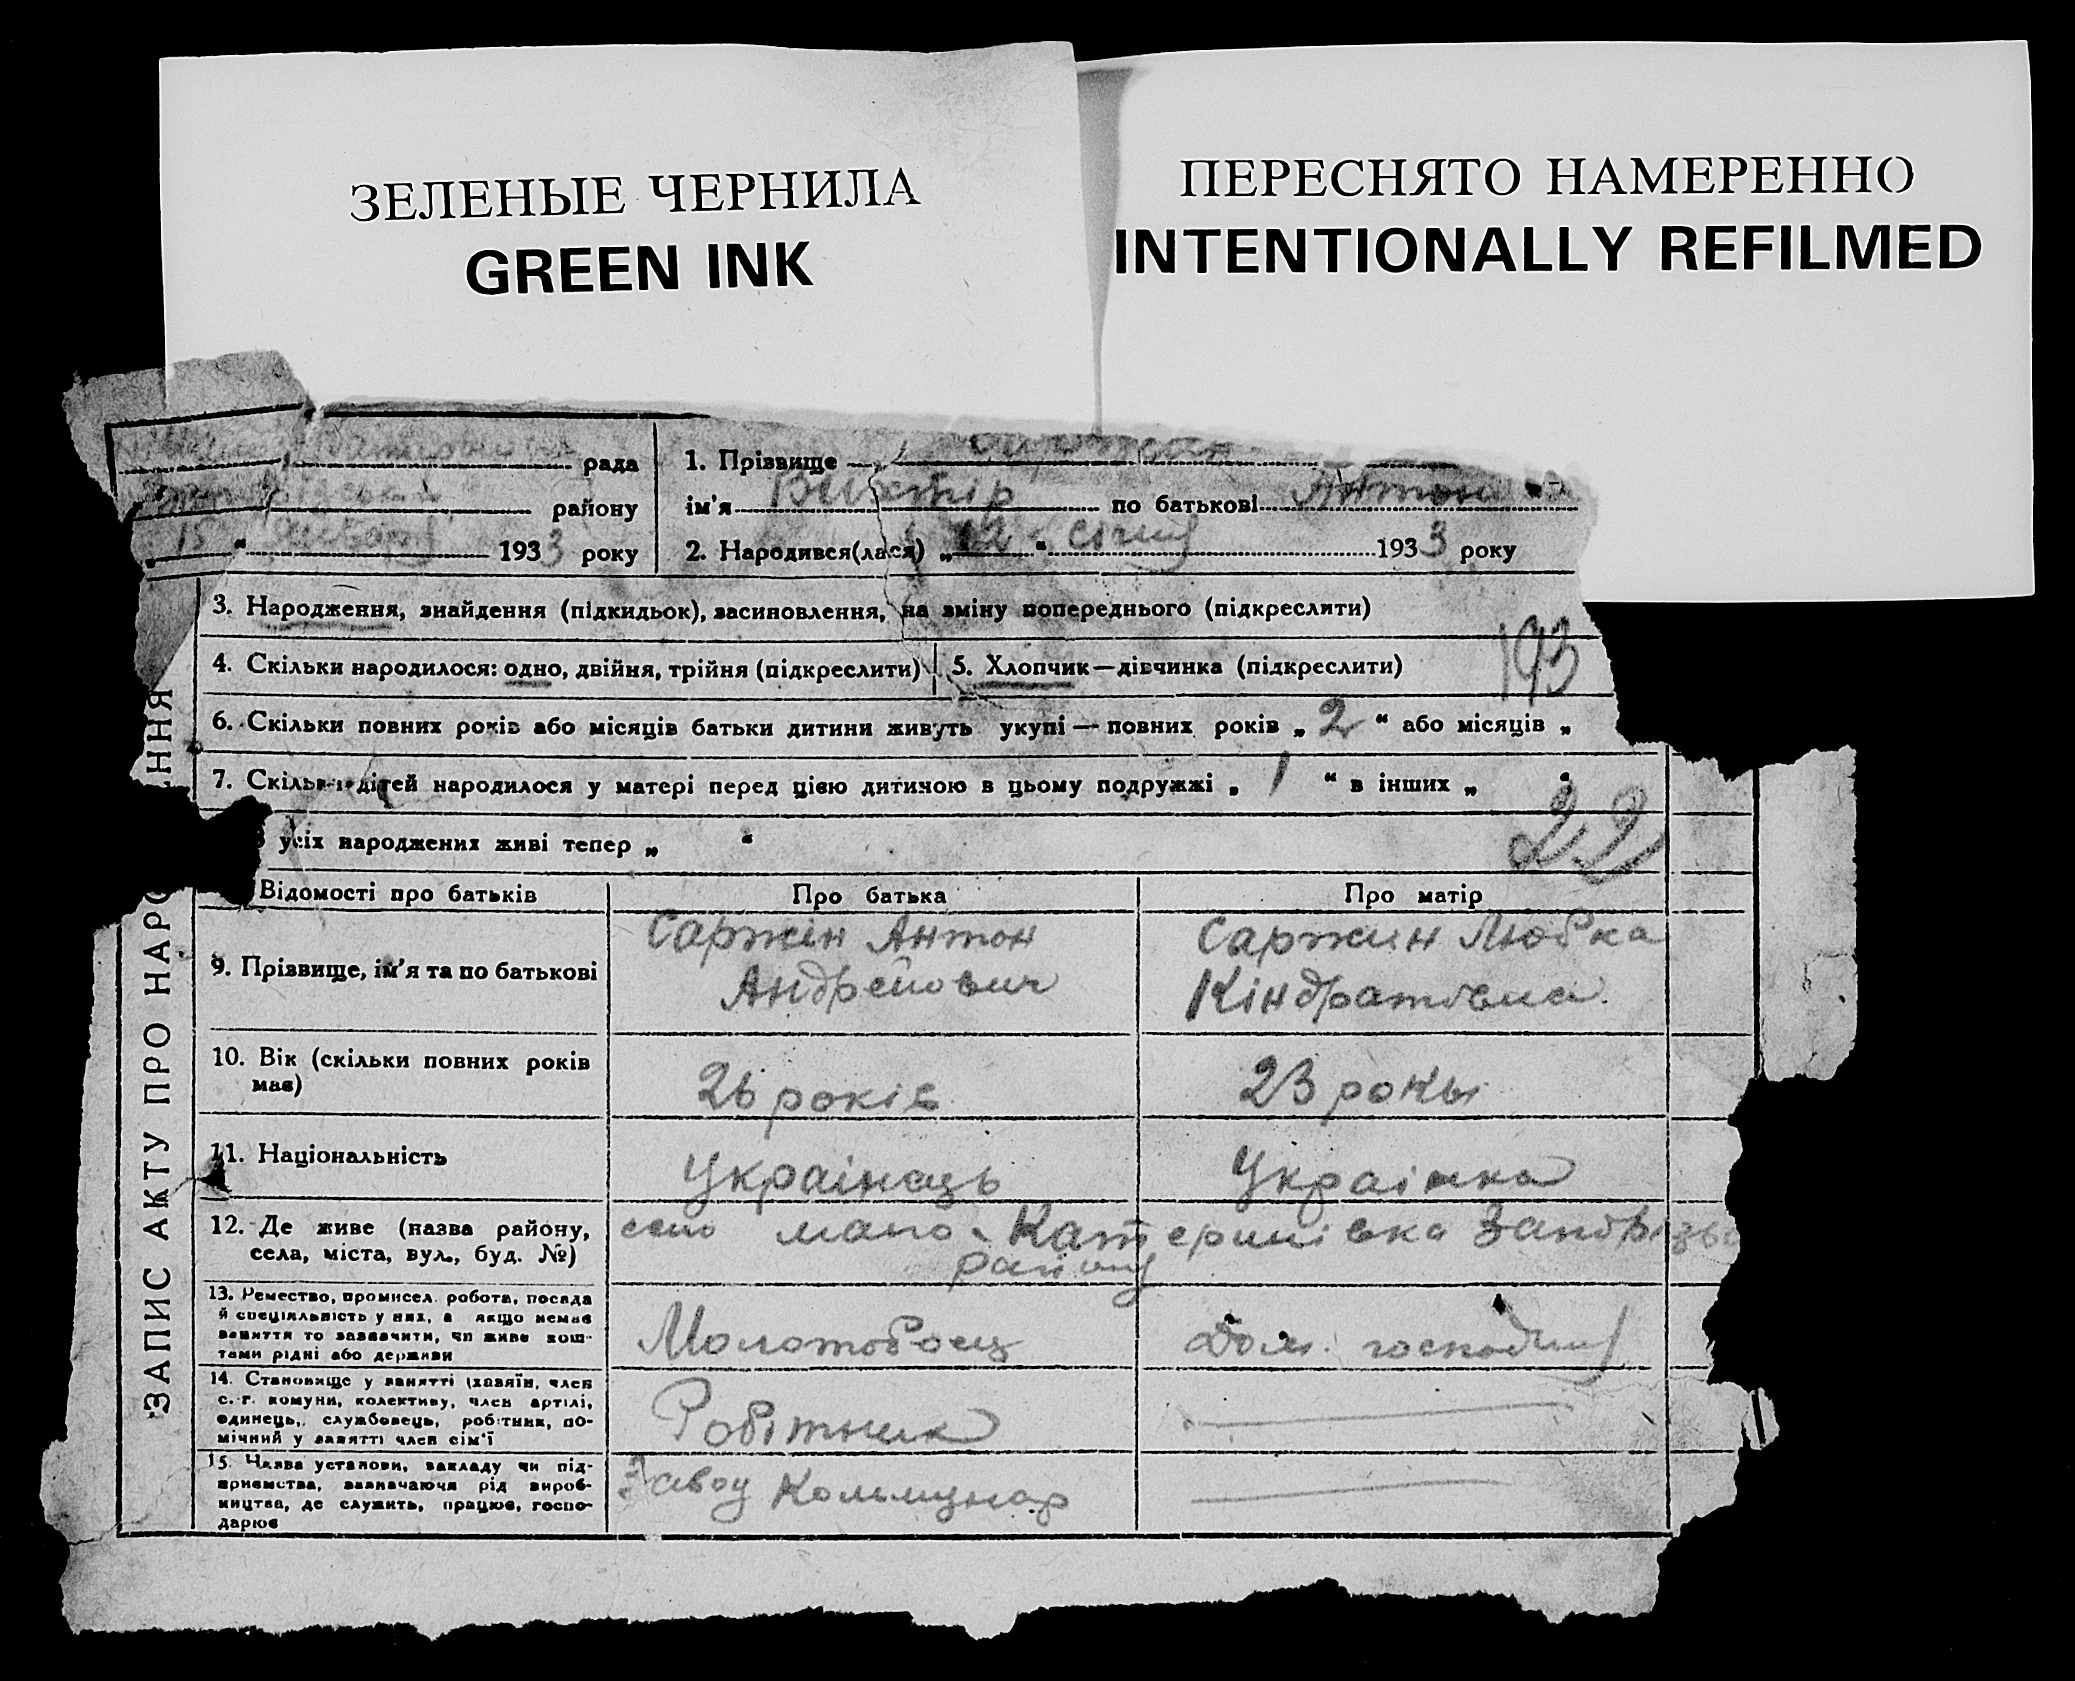 ЗЕЛЕНЫЕ ЧЕРНИЛА
GREEN INK
ПЕРЕСНЯТО НАМЕРЕННО
INTENTIONALLY REFILMED
рада
району
15 " 1933 року
1. Прізвище
ім'я Віктір по батькові Антон
2. Народився(лася) „12" січня 1933 року
3. Народження, знайдення (підкидьок), засиновлення, на зміну попереднього (підкреслити)
4. Скільки народилося: одно, двійня, трійня (підкреслити)
5. Хлопчик—дівчинка (підкреслити)
193
6. Скільки повних років або місяців батьки дитини живуть укупі — повних років „ 2 " або місяців „
7. Скільки дітей народилося у матері перед цією дитиною в цьому подружжі „ 1 " в інших „ "
усіх народжених живі тепер „ "
22
ЗАПИС АКТУ ПРО НАРО ННЯ
Відомості про батьків
Про батька
Про матір
9. Прізвище, ім'я та по батькові
Саржін Антон
Андрейович
Саржин Любка
Кіндратовна
10. Вік (скільки повних років має)
26 років
23 рокы
11. Національність
Українець
Українка
12. Де живе (назва району,
села, міста, вул., буд. №)
село мало-Катеринівка Запоріз
району
13. Ремество, промисел, робота, посада
й спеціяльність у них, а якщо немає
заняття то зазначити, чи живе кош-
тами рідні або держави
Молотобоец
Дом. господин
14. Становище у занятті (хазяїн, член
с.-г. комуни, колективу, член артілі,
одинець, службовець, робітник, по-
мічний у занятті член сім'ї
Робітник
15. Назва установи, закладу чи під-
приємства, зазначаючи рід вироб-
ництва, де служить, працює, госпо-
дарює
Завод Коммунар